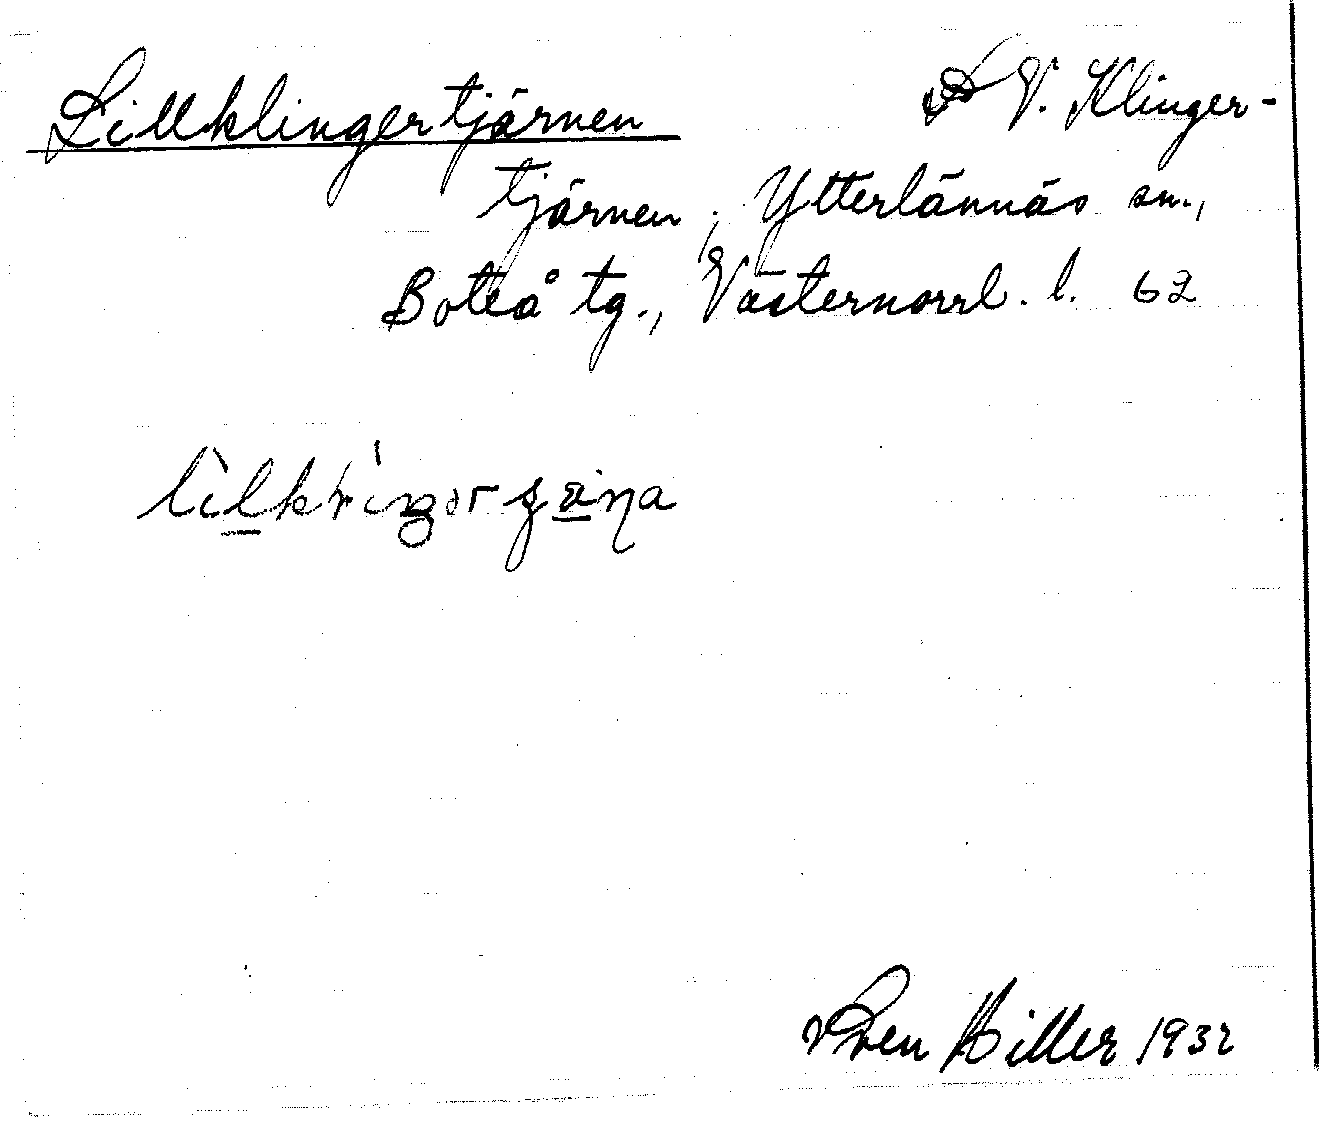 Lillklingertjärnen V. Klinger-
tjärnen, Ytterlännäs sn.,
Boteå tg., Västernorrl. l. 62
Sven Hiller 1932